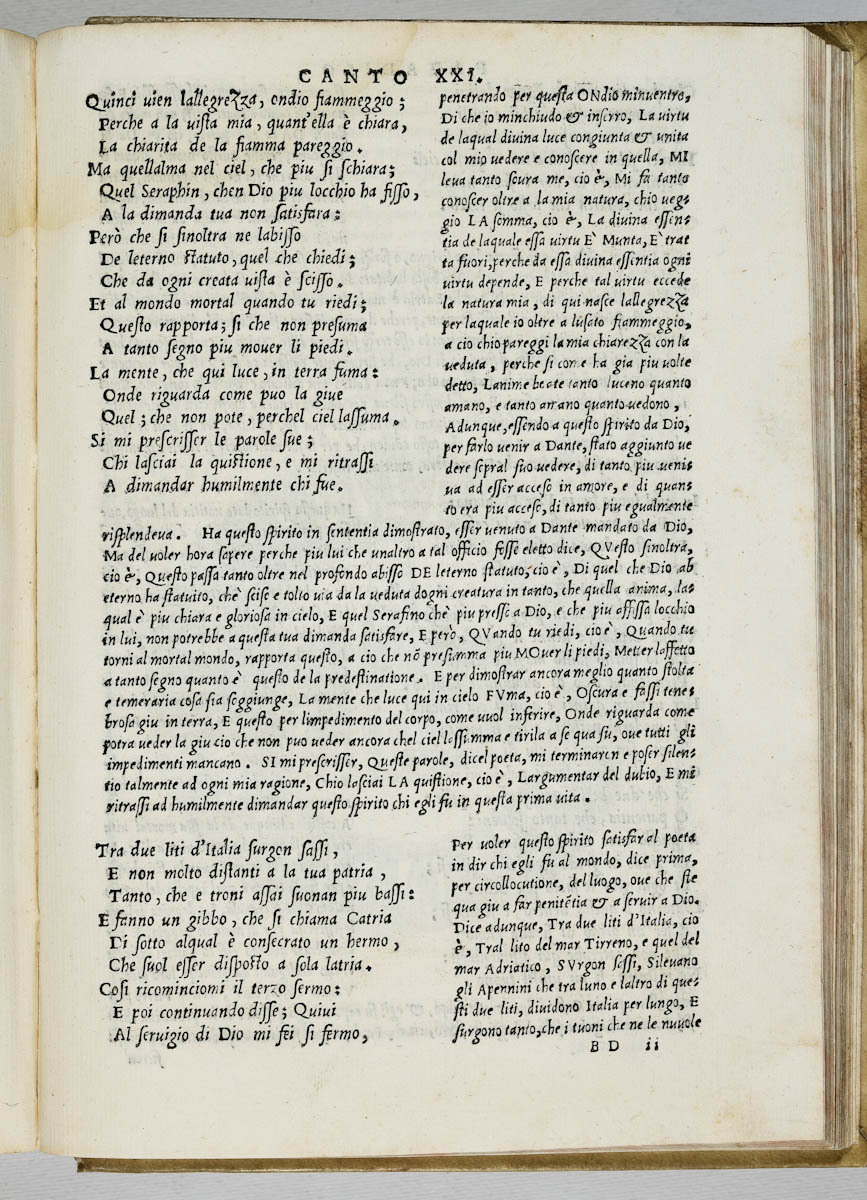 CANTO XXI.
Quinci uien lallegrezza, ondio fiammeggio;
Perche a la uista mia, quant'ella è chiara,
La chiarita de la fiamma pareggio.
Ma quellalma nel ciel, che piu si schiara;
Quel Seraphin, chen Dio piu locchio ha fisso,
A la dimanda tua non satisfara:
Però che si sinoltra ne labisso
De leterno statuto, quel che chiedi;
Che da ogni creata uista è scisso.
Et al mondo mortal quando tu riedi;
Questo rapporta; si che non presuma
A tanto segno piu mouer li piedi.
La mente, che qui luce, in terra fuma:
Onde riguarda come puo la giue
Quel; che non pote, perchel ciel lassuma.
Si mi prescrisser le parole sue;
Chi lasciai la quistione, e mi ritrassi
A dimandar humilmente chi fue.
penetrando per questa ONdio minuentro,
Di che io minchiudo & inserro, La uirtu
de laqual diuina luce congiunta & unita
col mio uedere e conoscere in quella, MI
leua tanto soura me, cio è, Mi fa tanto
conoscer oltre a la mia natura, chio ueg
gio LA somma, cio è, La diuina essen
tia de laquale essa uirtu E' Munta, E' trat
ta fuori, perche da essa diuina essentia ogni
uirtu depende, E perche tal uirtu eccede
la natura mia, di qui nasce lallegrezza
per laquale io oltre a lusato fiammeggio,
a cio chio pareggi la mia chiarezza con la
ueduta, perche si come ha gia piu uolte
detto, Lanime beate tanto luceno quanto
amano, e tanto amano quanto uedono,
Adunque, essendo a questo spirito da Dio,
per farlo uenir a Dante, stato aggiunto ue
dere sepral suo uedere, di tanto piu ueni
ua ad esser acceso in amore, e di quan
to era piu acceso, di tanto piu egualmente
risplendeua. Ha questo spirito in sententia dimostrato, esser uenuto a Dante mandato da Dio,
Ma del uoler hora sapere perche piu lui che unaltro a tal officio fosse eletto dice, QVesto sinoltra,
cio è, Questo passa tanto oltre nel profondo abisso DE leterno statuto, cio è, Di quel che Dio ab
eterno ha statuito, che scise e tolto uia da la ueduta dogni creatura in tanto, che quella anima, la
qual è piu chiara e gloriosa in cielo, E quel Serafino chè piu presso a Dio, e che piu affissa locchio
in lui, non potrebbe a questa tua dimanda satisfare, E però, QVando tu riedi, cio è, Quando tu
torni al mortal mondo, rapporta questo, a cio che nō presumma piu MOuer li piedi, Metter laffetto
a tanto segno quanto è questo de la predestinatione. E per dimostrar ancora meglio quanto stolta
e temeraria cosa sia soggiunge, La mente che luce qui in cielo FVma, cio è, Oscura e fassi tene
brosa giu in terra, E questo per limpedimento del corpo, come uuol inferire, Onde riguarda come
potra ueder la giu cio che non puo ueder ancora chel ciel lassumma e tirila a se qua su, oue tutti gli
impedimenti mancano. SI mi prescrisser, Queste parole, dicel poeta, mi terminaren e poser silen
tio talmente ad ogni mia ragione, Chio lasciai LA quistione, cio è, Largumentar del dubio, E mi
ritrassi ad humilmente dimandar questo spirito chi egli fu in questa prima uita.
Tra due liti d'Italia surgon sassi,
E non molto distanti a la tua patria,
Tanto, che e troni assai suonan piu bassi:
E fanno un gibbo, che si chiama Catria
Di sotto alqual è consecrato un hermo,
Che suol esser disposto a sola latria.
Cosi ricominciomi il terzo sermo:
E poi continuando disse; Quiui
Al seruigio di Dio mi fei si fermo,
Per uoler questo spirito satisfar al poeta
in dir chi egli fu al mondo, dice prima,
per circollocutione, del luogo, oue che ste
qua giu a far penitētia & a seruir a Dio.
Dice adunque, Tra due liti d'Italia, cio
è, Tral lito del mar Tirreno, e quel del
mar Adriatico, SVrgon sassi, Sileuano
gli Apennini che tra luno e laltro di que
sti due liti, diuidono Italia per lungo, E
surgono tanto, che i tuoni che ne le nuuole
BD ii